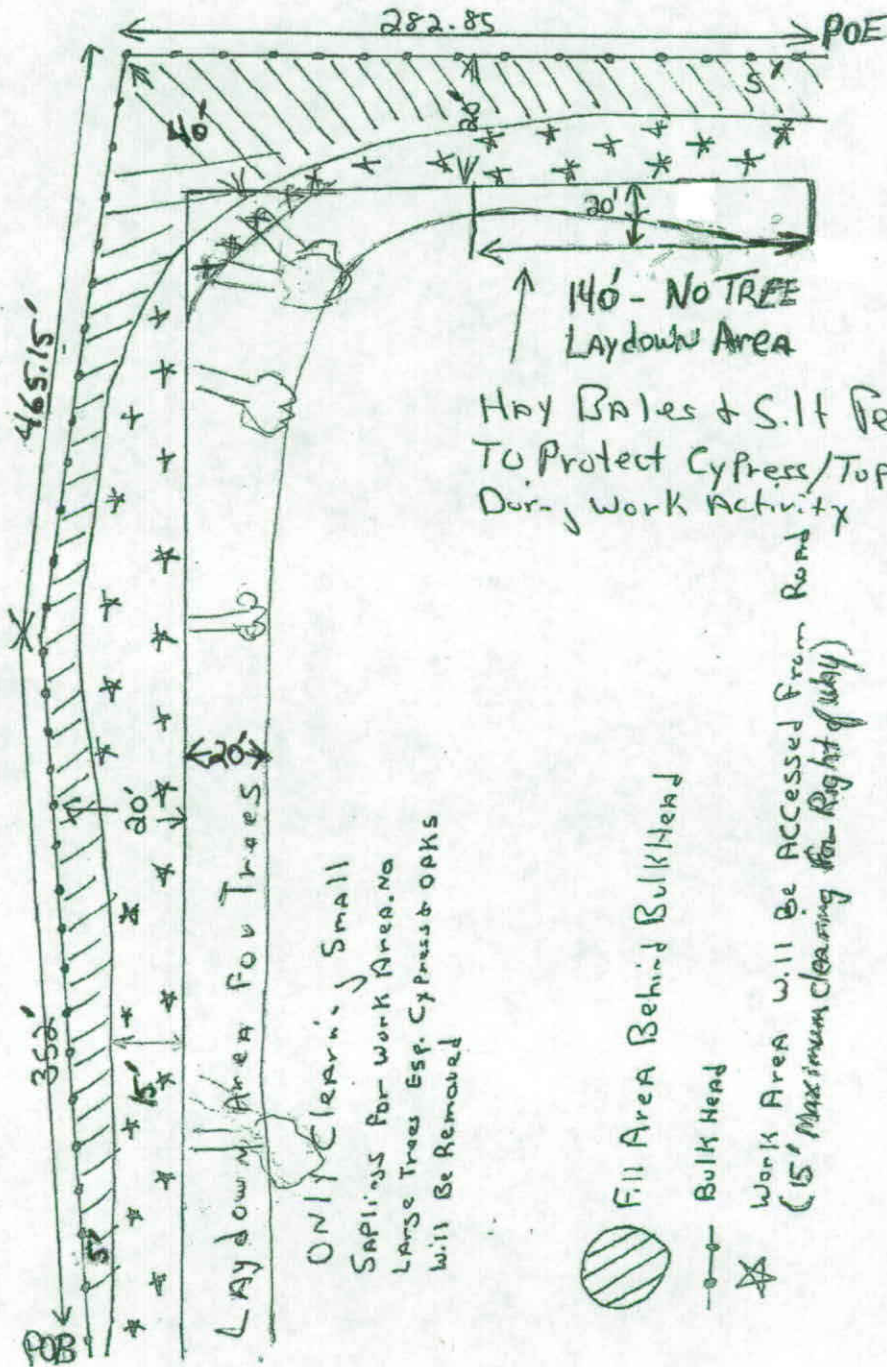 282.85
POE
5'
20'
40'
20'
140' - No TREE
Laydown Area
Hay Bales & Silt
To Protect Cypress/
During Work Activity
465.15'
352'
POB
5'
15'
20'
20'
Laydown Area For Trees
Only Clearing Small
Saplings for Work Area. No
Large Trees Esp. Cypress & Oaks
Will Be Removed
Fill Area Behind Bulkhead
Bulk Head
Work Area Will Be Accessed From Road
(15' Maximum clearing for Right of way)